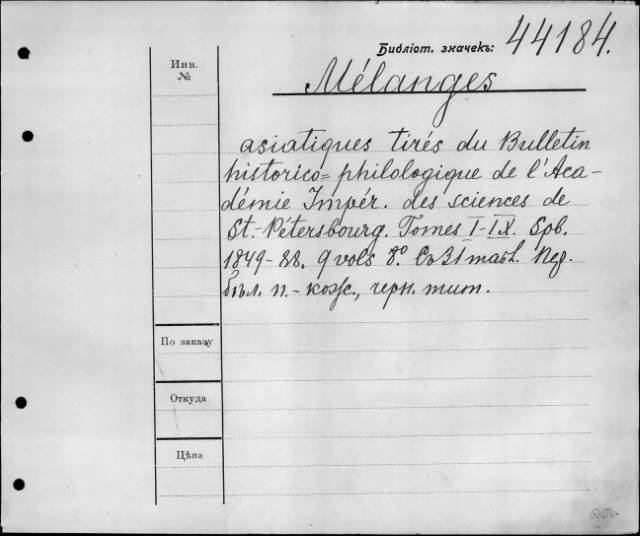 Библіот. значекъ: 44184.
Инв.
№
Mélanges
asiatiques tirés du Bulletin
historico=philologique de l'Aca-
démie Impér. des sciences de
St.-Pétersbourg. Tomes I-IX. Spb.
1849-88. 9 vols 8º. Съ 31 табл. Пер.
бѣл. п.-кож., черн. тит.
По заказу
Откуда
Цѣна